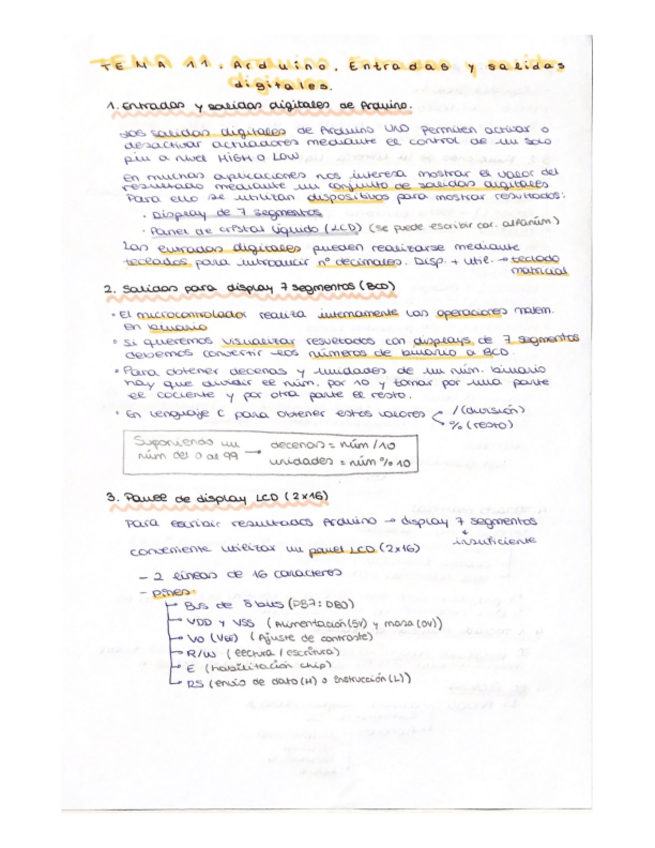 TEMA 11. Arduino. Entradas y salidas
digitales.
1. Entradas y salidas digitales de Arduino.
Las salidas digitales de Arduino UNO permiten activar o
desactivar actuadores mediante el control de un solo
pin a nivel HIGH O LOW.
En muchas aplicaciones nos interesa mostrar el valor del
resultado mediante un conjunto de salidas digitales
Para ello se utilizan dispositivos para mostrar resultados:
· Display de 7 segmentos
· Panel de cristal líquido (LCD) (se puede escribir car. alfanúm)
Las entradas digitales pueden realizarse mediante
teclados para introducir nº decimales. Disp. + util. → teclado
matricial
2. Salidas para display 7 segmentos (BCD)
· El microcontrolador realiza internamente las operaciones matem.
en binario
· Si queremos visualizar resultados con displays de 7 segmentos
debemos convertir los números de binario a BCD.
· Para obtener decenas y unidades de un núm. binario
hay que dividir el núm. por 10 y tomar por una parte
el cociente y por otra parte el resto.
· En lenguaje C para obtener estos valores / (división)
% (resto)
Suponiendo un
núm del 0 al 99 → decenas = núm / 10
unidades = núm % 10
3. Panel de display LCD (2x16)
Para escribir resultados Arduino → display 7 segmentos
insuficiente
conveniente utilizar un panel LCD (2x16)
- 2 líneas de 16 caracteres
- pines:
Bus de 8 bits (DB7: DB0)
VDD y VSS (Alimentación (5V) y masa (0V))
VO (VEE) (Ajuste de contraste)
R/W (lectura / escritura)
E (habilitación chip)
RS (envío de dato (H) o Instrucción (L))